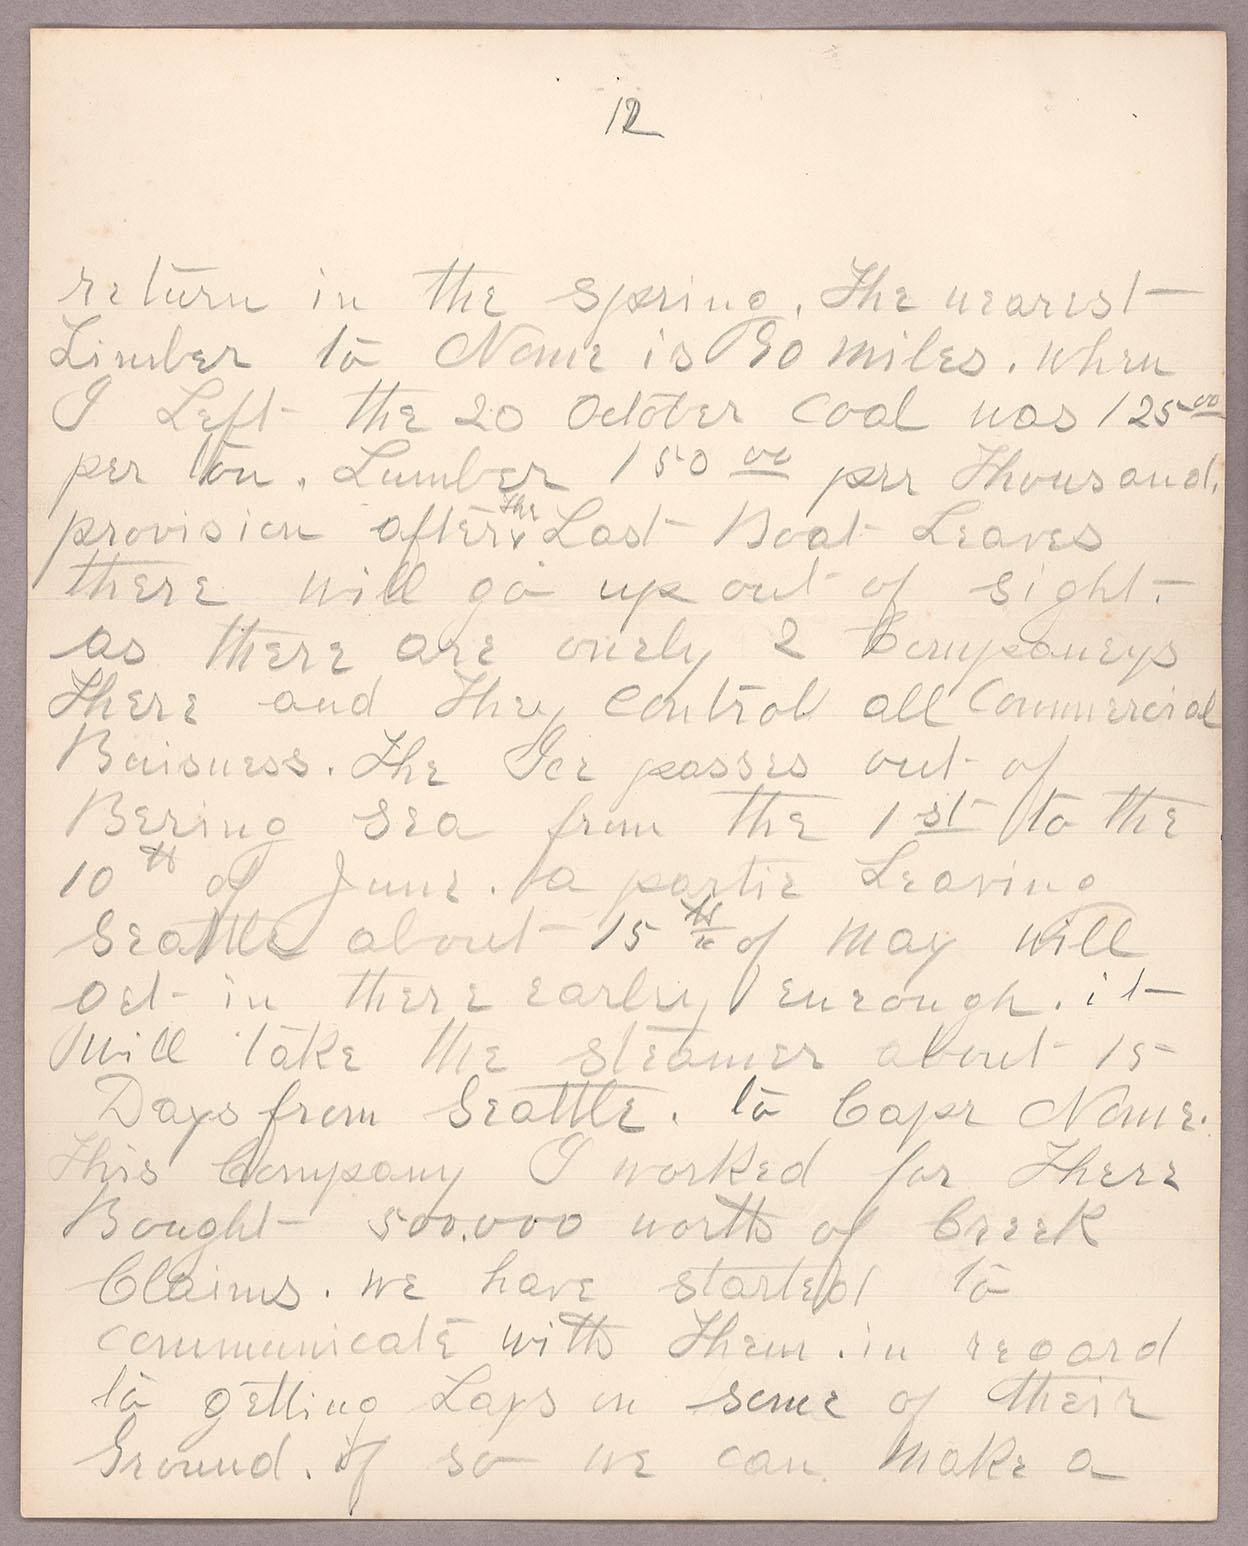 12
return in the spring. The nearest
Limber to Nome is 90 miles. when
I Left the 20 October coal was 125 00
per ton. Lumber 150 00 per Thousand.
provision after the Last Boat Leaves
there will go up out of sight.
as there are onely 2 Companeys
There and They control all Commercial
Buisness. The Ice passes out of
Bering Sea from the 1st to the
10th of June. a partie Leaving
Seattle about 15th of May will
get in there early enerough. it
will take the steamer about 15
Days from Seattle. to Cape Nome.
This Company I worked for There
Bought 500.000 worth of Creek
Claims. we have started to
communicate with Them. in regard
to getting Lays on some of their
Ground. if so we can make a